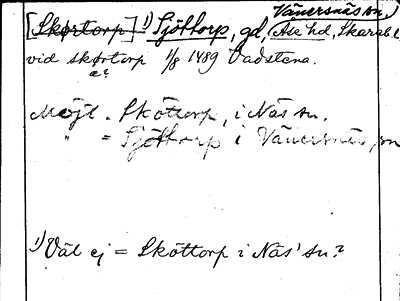 Vänersnäs sn,
[Skørtorp] 1) Sjöttorp, gd, (Åse hd, Skarab. l
vid skørtorp 1/8 1489 Vadstena.
Möjl. Sköttorp, i Näs sn.
" = Sjöttorp i Vänersnäs sn
1) Väl ej = Sköttorp i Näs' sn?